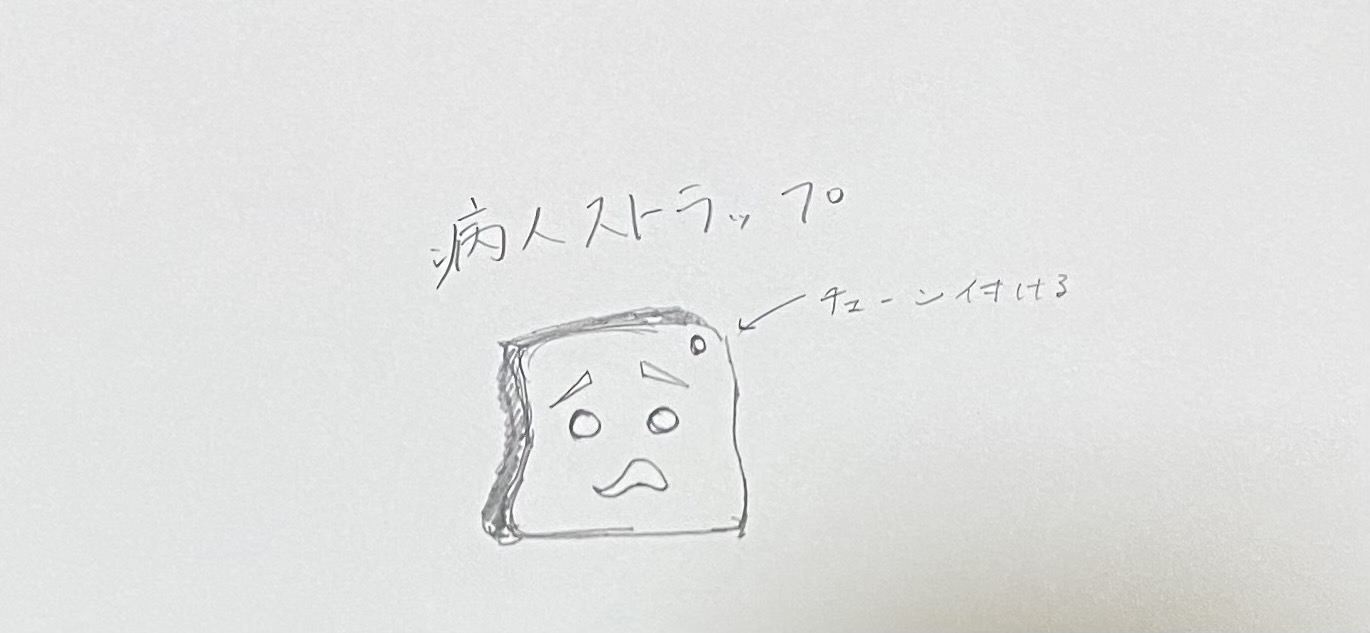 病人ストラップ
チェーン付ける